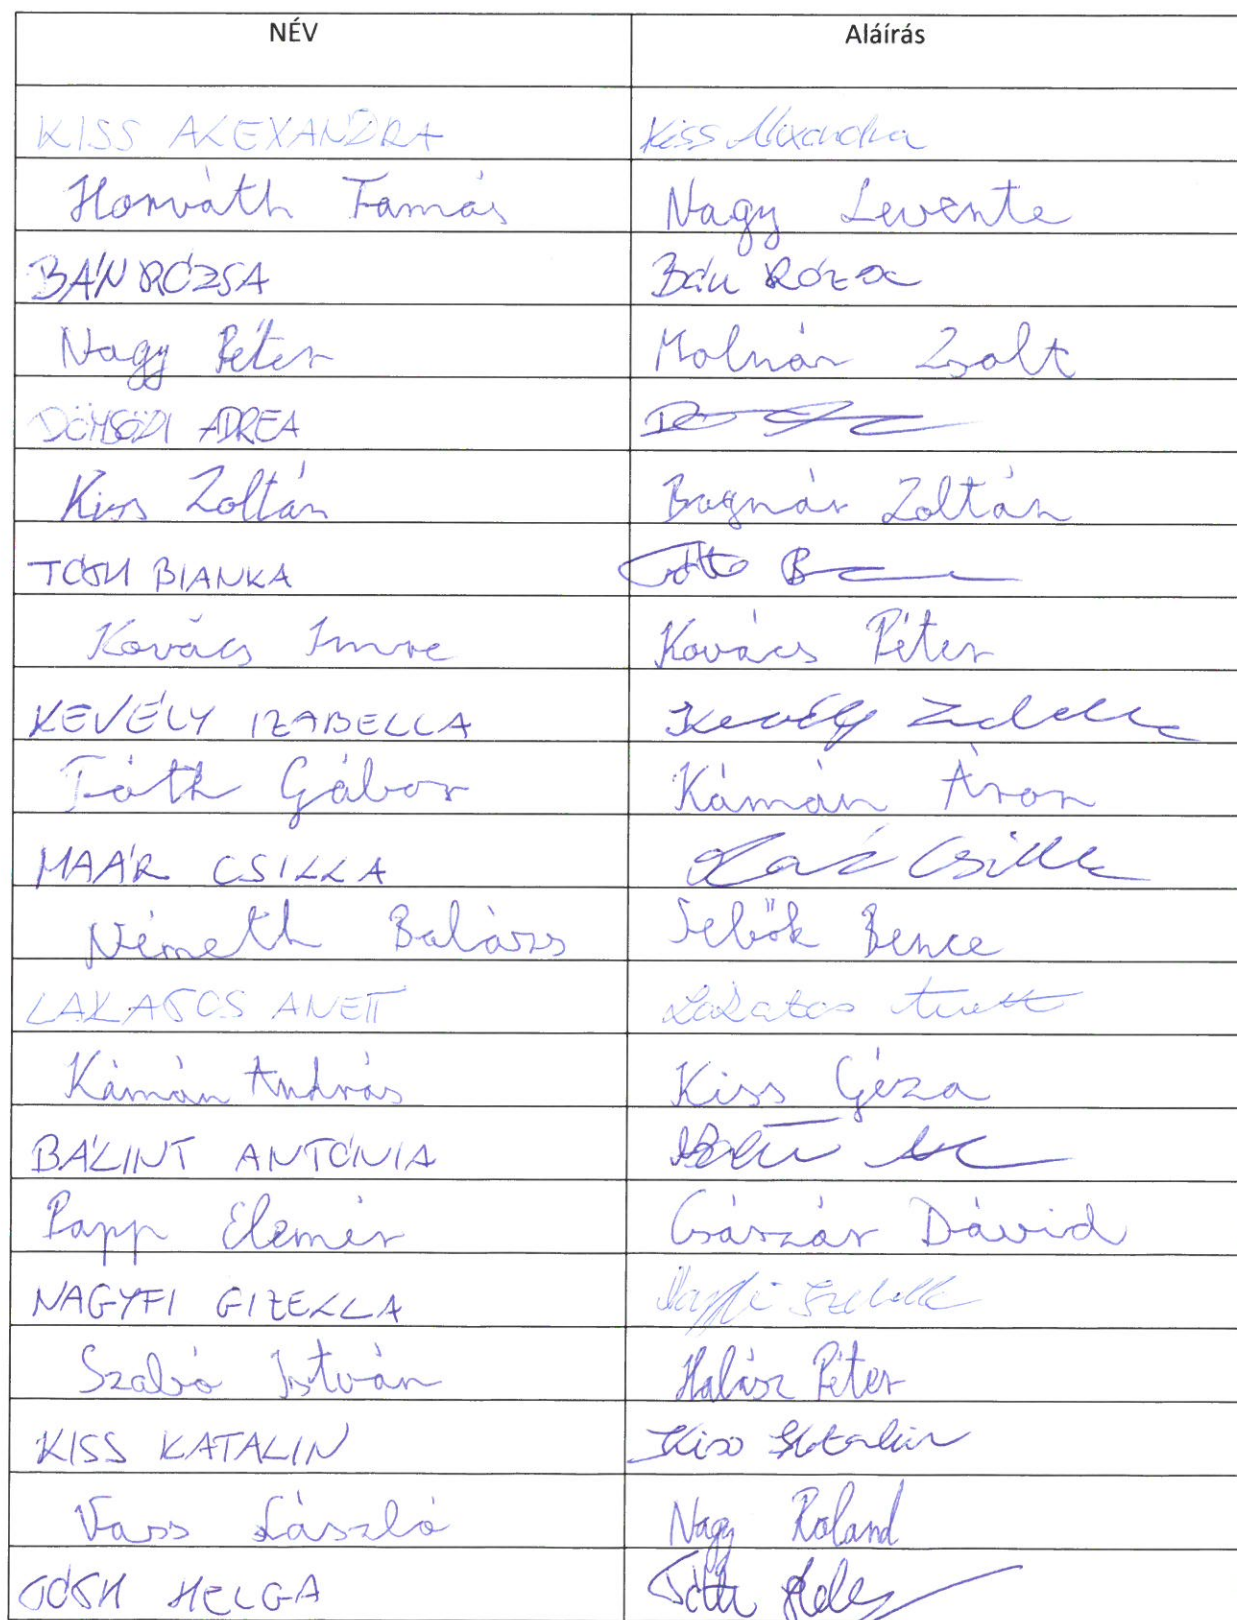 NÉV Aláírás
KISS ALEXANDRA Kiss Alexandra
Horváth Tamás Nagy Levente
BÁN RÓZSA Bán Rózsa
Nagy Péter Molnár Zsolt
DÖMSÖDI ADREA
Kiss Zoltán Bognár Zoltán
TÓTH BIANKA Tóth B
Kovács Imre Kovács Péter
KEVÉLY IZABELLA Kevély Izabella
Tóth Gábor Kámán Áron
MAÁR CSILLA Csilla
Németh Balázs Sebők Bence
LAKATOS ANETT Lakatos Anett
Kámán András Kiss Géza
BÁLINT ANTÓNIA
Papp Elemér Császár Dávid
NAGYFI GIZELLA Nagyfi
Szabó István Halász Péter
KISS KATALIN Kiss Katalin
Vass László Nagy Roland
TÓTH HELGA Tóth Helg